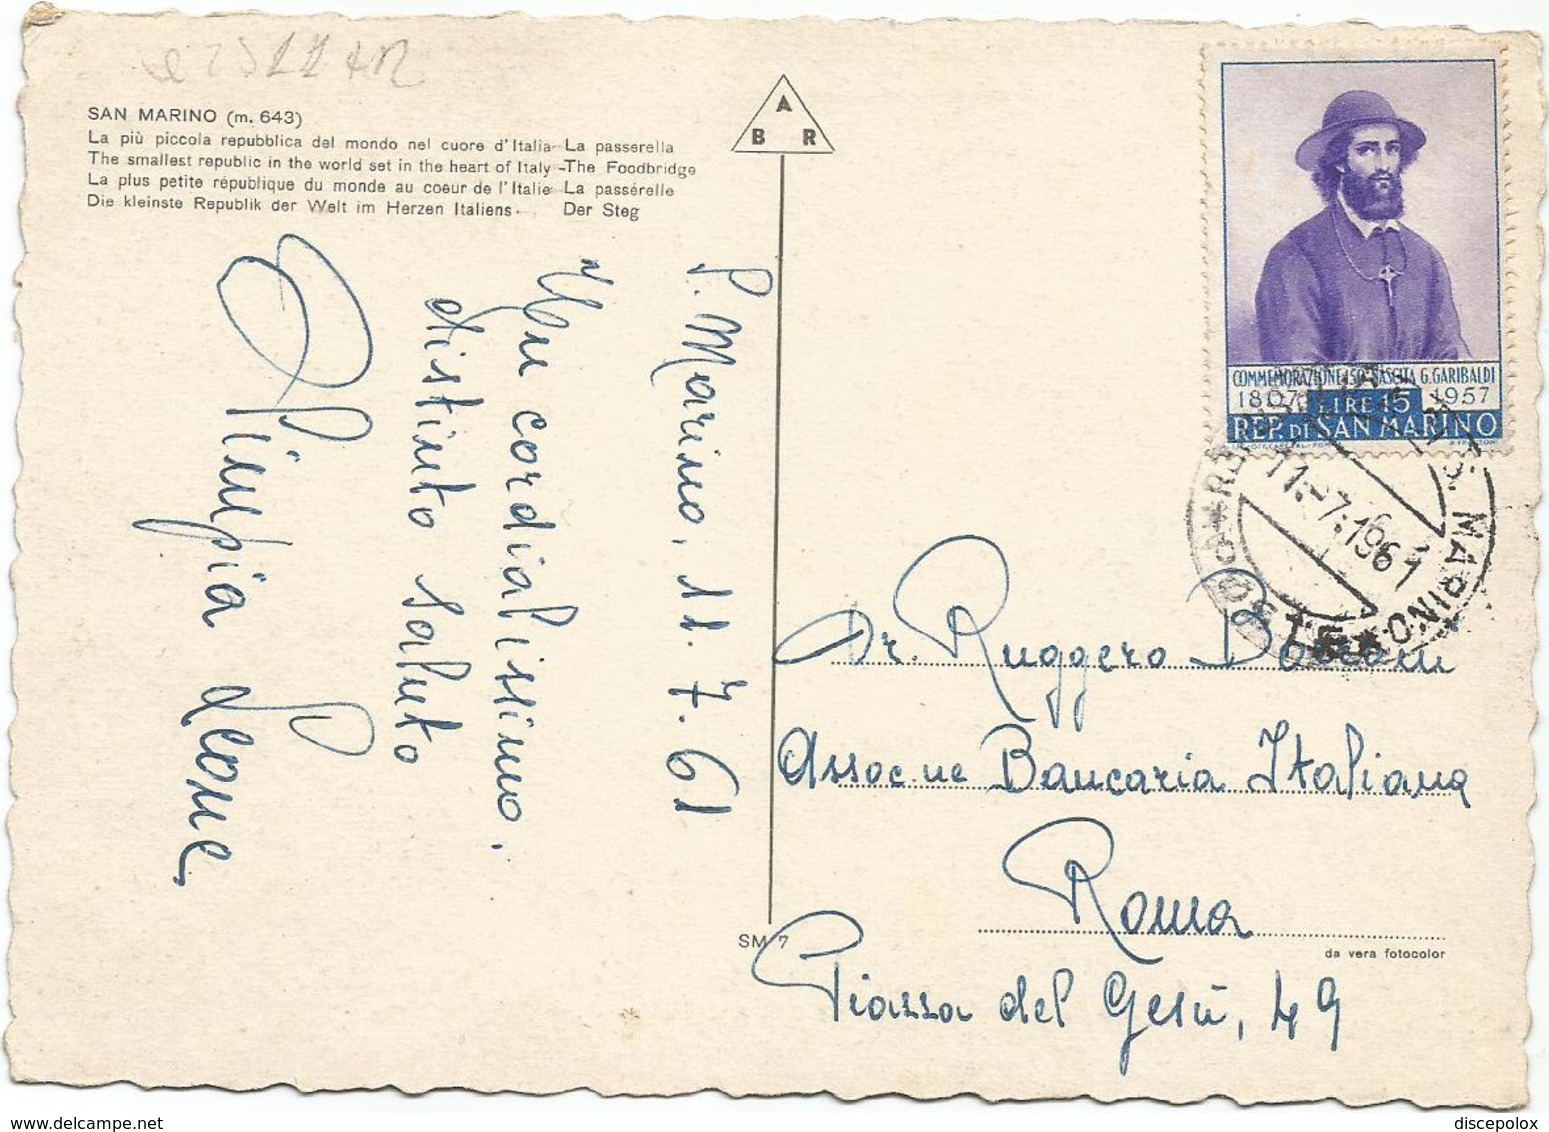 SAN MARINO (m. 643)
La più piccola repubblica del mondo nel cuore d'Italia - La passerella
The smallest republic in the world set in the heart of Italy - The Foodbridge
La plus petite république du monde au coeur de l'Italie - La passérelle
Die kleinste Republik der Welt im Herzen Italiens - Der Steg
A
B R
S. Marino, 11.7.61
Un cordialissimo.
distinto saluto
Olimpia Leone
COMMEMORAZIONE 150ª NASCITA G. GARIBALDI
1807 LIRE 15 1957
REP. DI SAN MARINO
11.-7.1961
S. MARINO
Dr. Ruggero
Assoc.ne Bancaria Italiana
Roma
Piazza del Gesù, 49
SM 7
da vera fotocolor
www.delcampe.net
discepolox